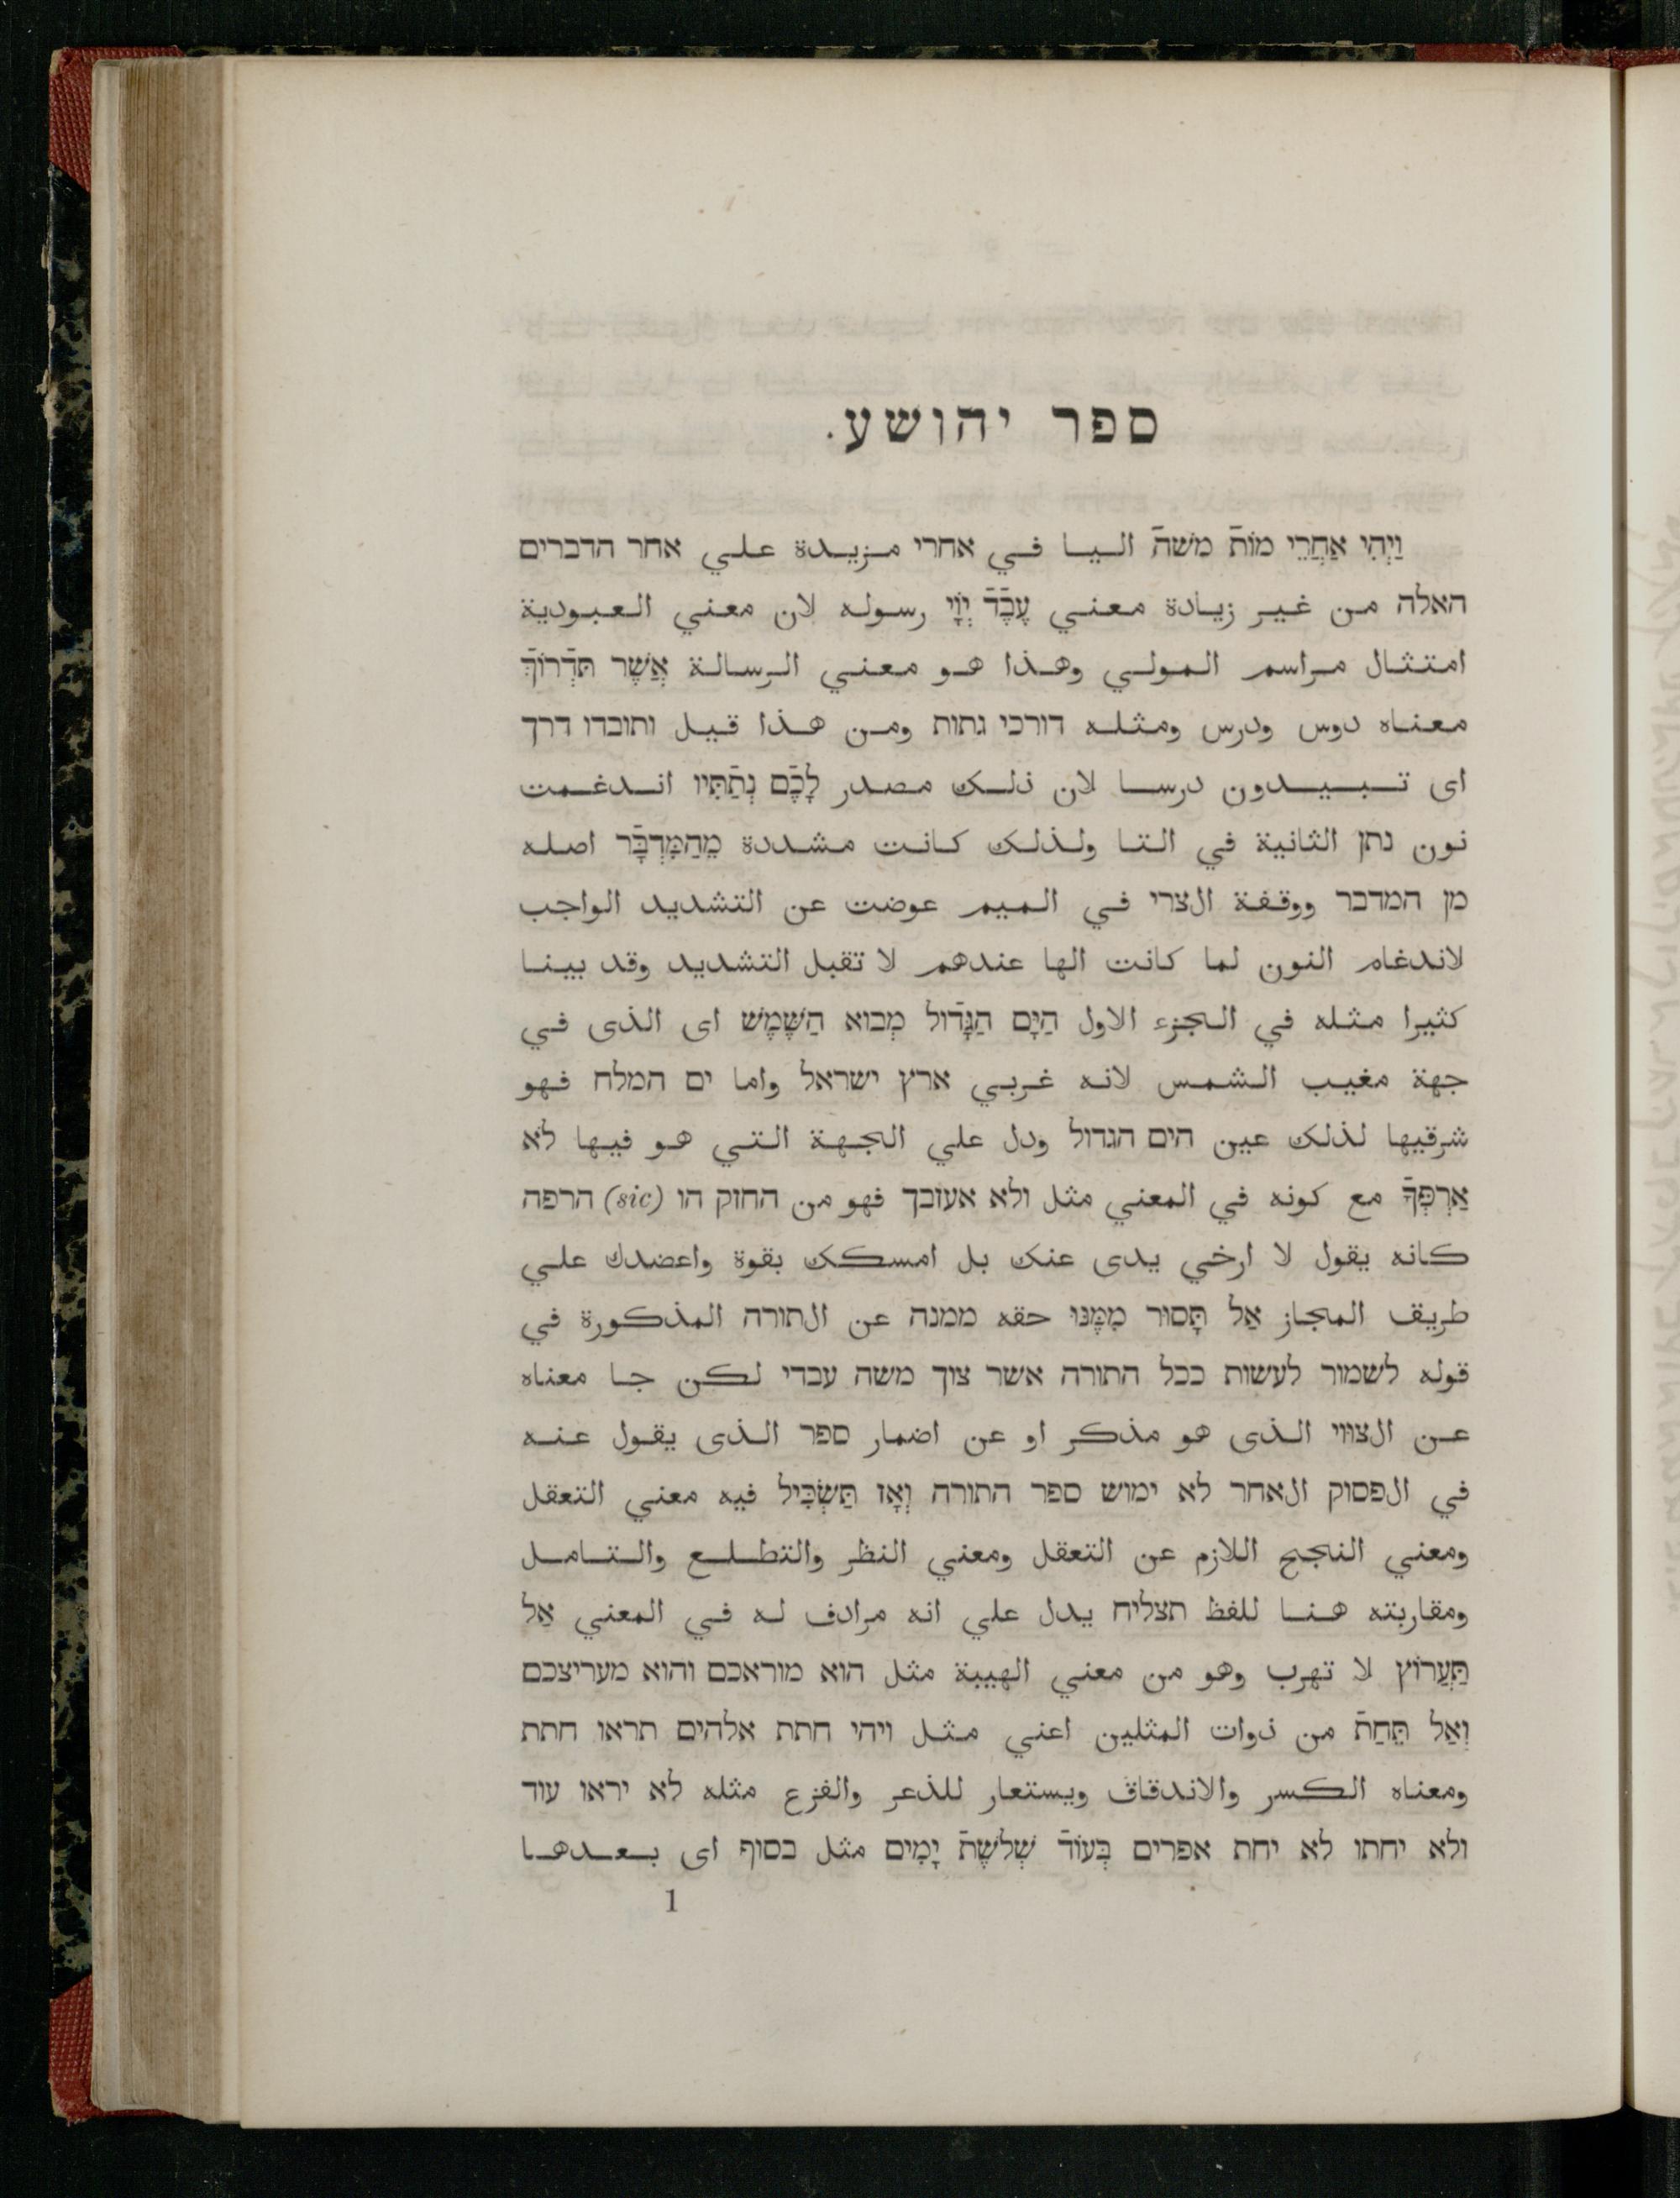 ספר יהושע.
וַיְהִי אַחֲרֵי מוֹתֿ מֹשֶׁהֿ اليا في אחרי مزيدة علي אחר הדברים
האלה من غير زيادة معني עֶבֶֿדֿ יְוָֹי رسوله لان معني العبودية
امتثال مراسم المولي وهذا هو معني الرسالة אֲשֶׁר תִּדְֿרוֹךְֿ
معناه دوس ودرس ومثله דורכי גתות ومن هذا قيل ותובדו דרך
اى تبيدون درسا لان ذلك مصدر לָכֶֿם נְתַֿתִּיו اندغمت
نون נתן الثانية في التا ولذلك كانت مشددة מֵהַמִּדְבָּֿר اصله
מן המדבר ووقفة الצרי في الميم عوضت عن التشديد الواجب
لاندغام النون لما كانت الها عندهم لا تقبل التشديد وقد بينا
كثيرا مثله في الجزء الاول הַיָּם הַגָּדֿוֹל מְבוֹא הַשֶּׁמֶשׁ اى الذى في
جهة مغيب الشمس لانه غربي ארץ ישראל واما ים המלח فهو
شرقيها لذلك عين הים הגדול ودل علي الجهة التي هو فيها לֹא
אַרְפְּךָֿ مع كونه في المعني مثل ולא אעזבך فهو من החזק הו (sic) הרפה
كانه يقول لا ارخي يدى عنك بل امسكك بقوة واعضدك علي
طريق المجاز אַל תָּסוּר מִמֶּנּוּ حقه ממנה عن الתורה المذكورة في
قوله לשמור לעשות ככל התורה אשר צוך משה עבדי لكن جا معناه
عن الצווי الذى هو مذكر او عن اضمار ספר الذى يقول عنه
في الפסוק الאחר לא ימוש ספר התורה וְאָז תַּשְׂכִּיל فيه معني التعقل
ومعني النجح اللازم عن التعقل ومعني النظر والتطلع والتامل
ومقاربته هنا للفظ תצליח يدل علي انه مرادف له في المعني אַל
תַּעֲרוֹץ لا تهرب وهو من معني الهيبة مثل הוא מוראכם והוא מעריצכם
וְאַל תֵּחַתֿ من ذوات المثلين اعني مثل ויהי חתת אלהים תראו חתת
ومعناه الكسر والاندقاق ويستعار للذعر والفزع مثله לא יראו עוד
ולא יחתו לא יחת אפרים בְּעוֹדֿ שְׁלֹשֶׁתֿ יָמִים مثل בסוף اى بعدها
1